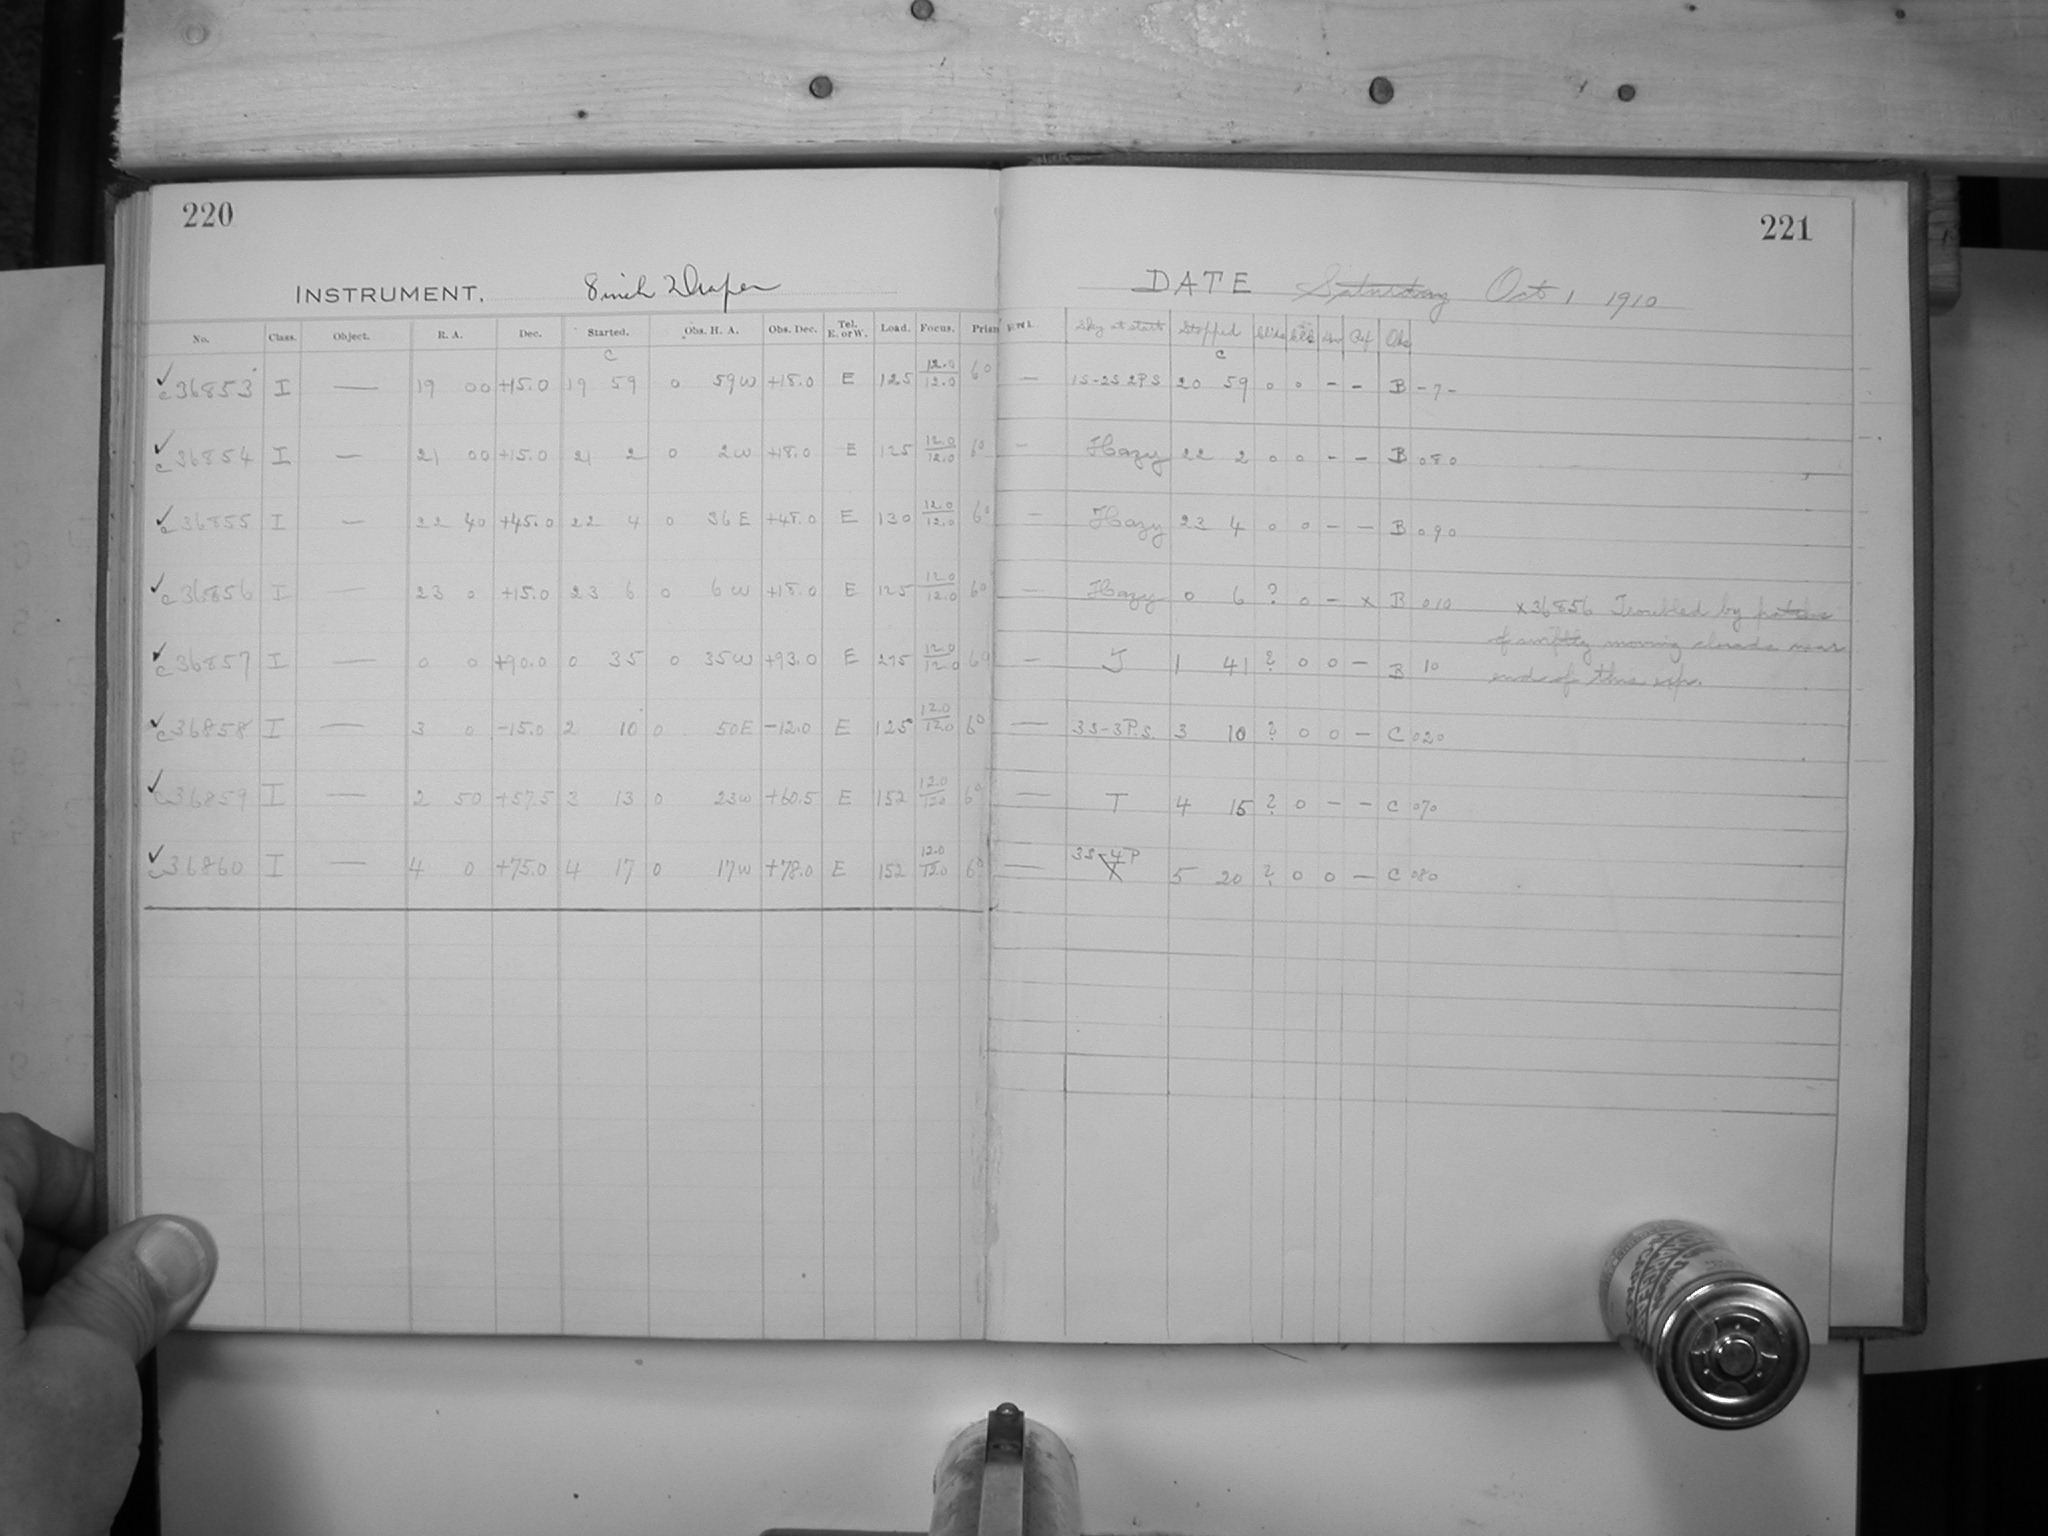 220
INSTRUMENT. 8 inch Draper
No. Class. Object. R. A. Dec. Started. Obs. H. A. Obs. Dec. Tel. E. or W. Load. Focus. Prism
C
✓ c36853 I — 19 00 +15.0 19 59 0 59W +18.0 E 125 12.0/12.0 6°
✓ c36854 I — 21 00 +15.0 21 2 0 2W +18.0 E 125 12.0/12.0 6°
✓ c36855 I — 22 40 +45.0 22 4 0 36E +48.0 E 130 12.0/12.0 6°
✓ c36856 I — 23 0 +15.0 23 6 0 6W +18.0 E 125 12.0/12.0 6°
✓ c36857 I — 0 0 +90.0 0 35 0 35W +93.0 E 275 12.0/12.0 6°
✓ c36858 I — 3 0 -15.0 2 10 0 50E -12.0 E 125 12.0/12.0 6°
✓ c36859 I — 2 50 +57.5 3 13 0 23W +60.5 E 152 12.0/12.0 6°
✓ c36860 I — 4 0 +75.0 4 17 0 17W +78.0 E 152 12.0/12.0 6°
221
DATE Saturday Oct 1 1910
Sky at start Stopped Ref Obs
C
— 1S-2S 2PS 20 59 0 0 - - B -7-
— Hazy 22 2 0 0 - - B 080
— Hazy 23 4 0 0 - - B 090
— Hazy 0 6 ? 0 - x B 010
— J 1 41 ? 0 0 - B 10
— 3S-3P.S. 3 10 ? 0 0 - C 020
— T 4 15 ? 0 - - C 070
— 3S-4P 5 20 ? 0 0 - C 080
x36856 Troubled by patches
of swiftly moving clouds near
end of this exp.